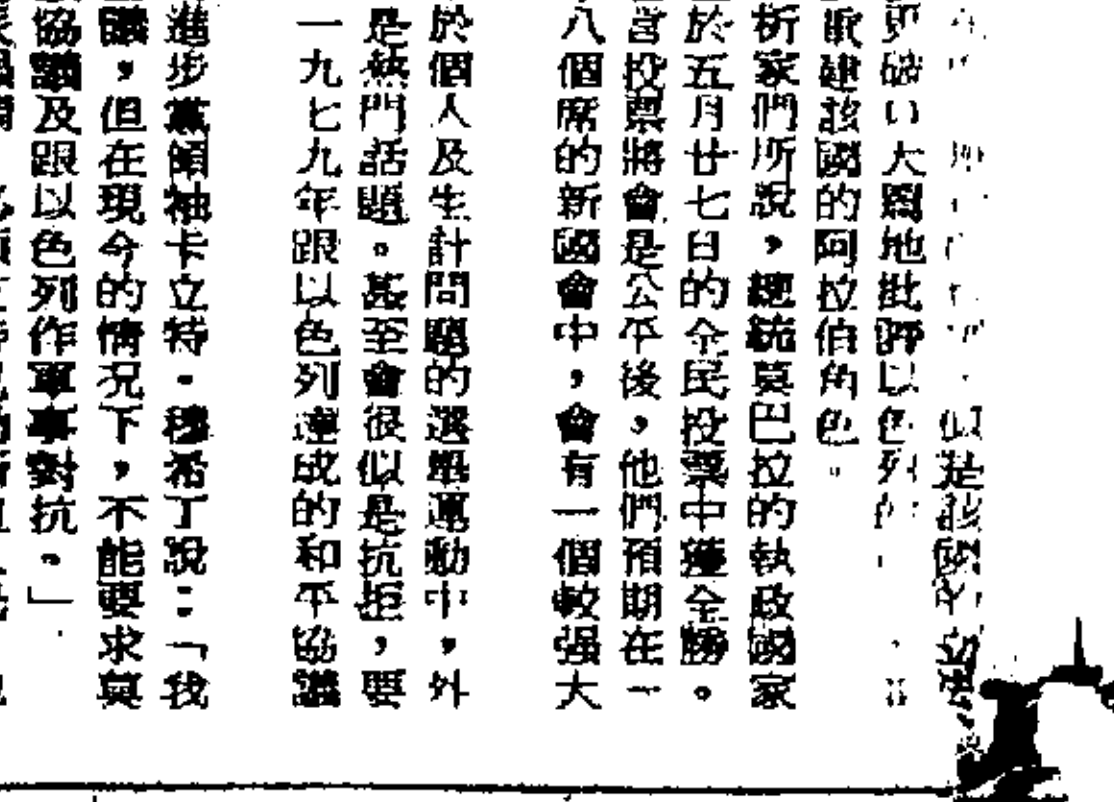 似是該國
大闊地批評以色列的
建該國的阿拉伯角色。
析家們所說，總統莫巴拉的執政國家
於五月廿七日的全民投票中獲全勝。
營投票將會是公平後，他們預期在一
八個席的新國會中，會有一個較强大
於個人及生計問題的選舉運動中，外
是熱門話題。甚至會很似是抗拒，要
一九七九年跟以色列達成的和平協議
進步黨領袖卡立特·穆希丁說：「我
議，但在現今的情况下，不能要求與
協議及跟以色列作軍事對抗。」